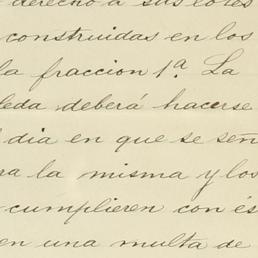 derecho a sus lotes
construidas en los
la fraccion 1ª. La
eda deberá hacerse
dia en que se señ
ra la misma y los
cumplieren con és
en una multa de